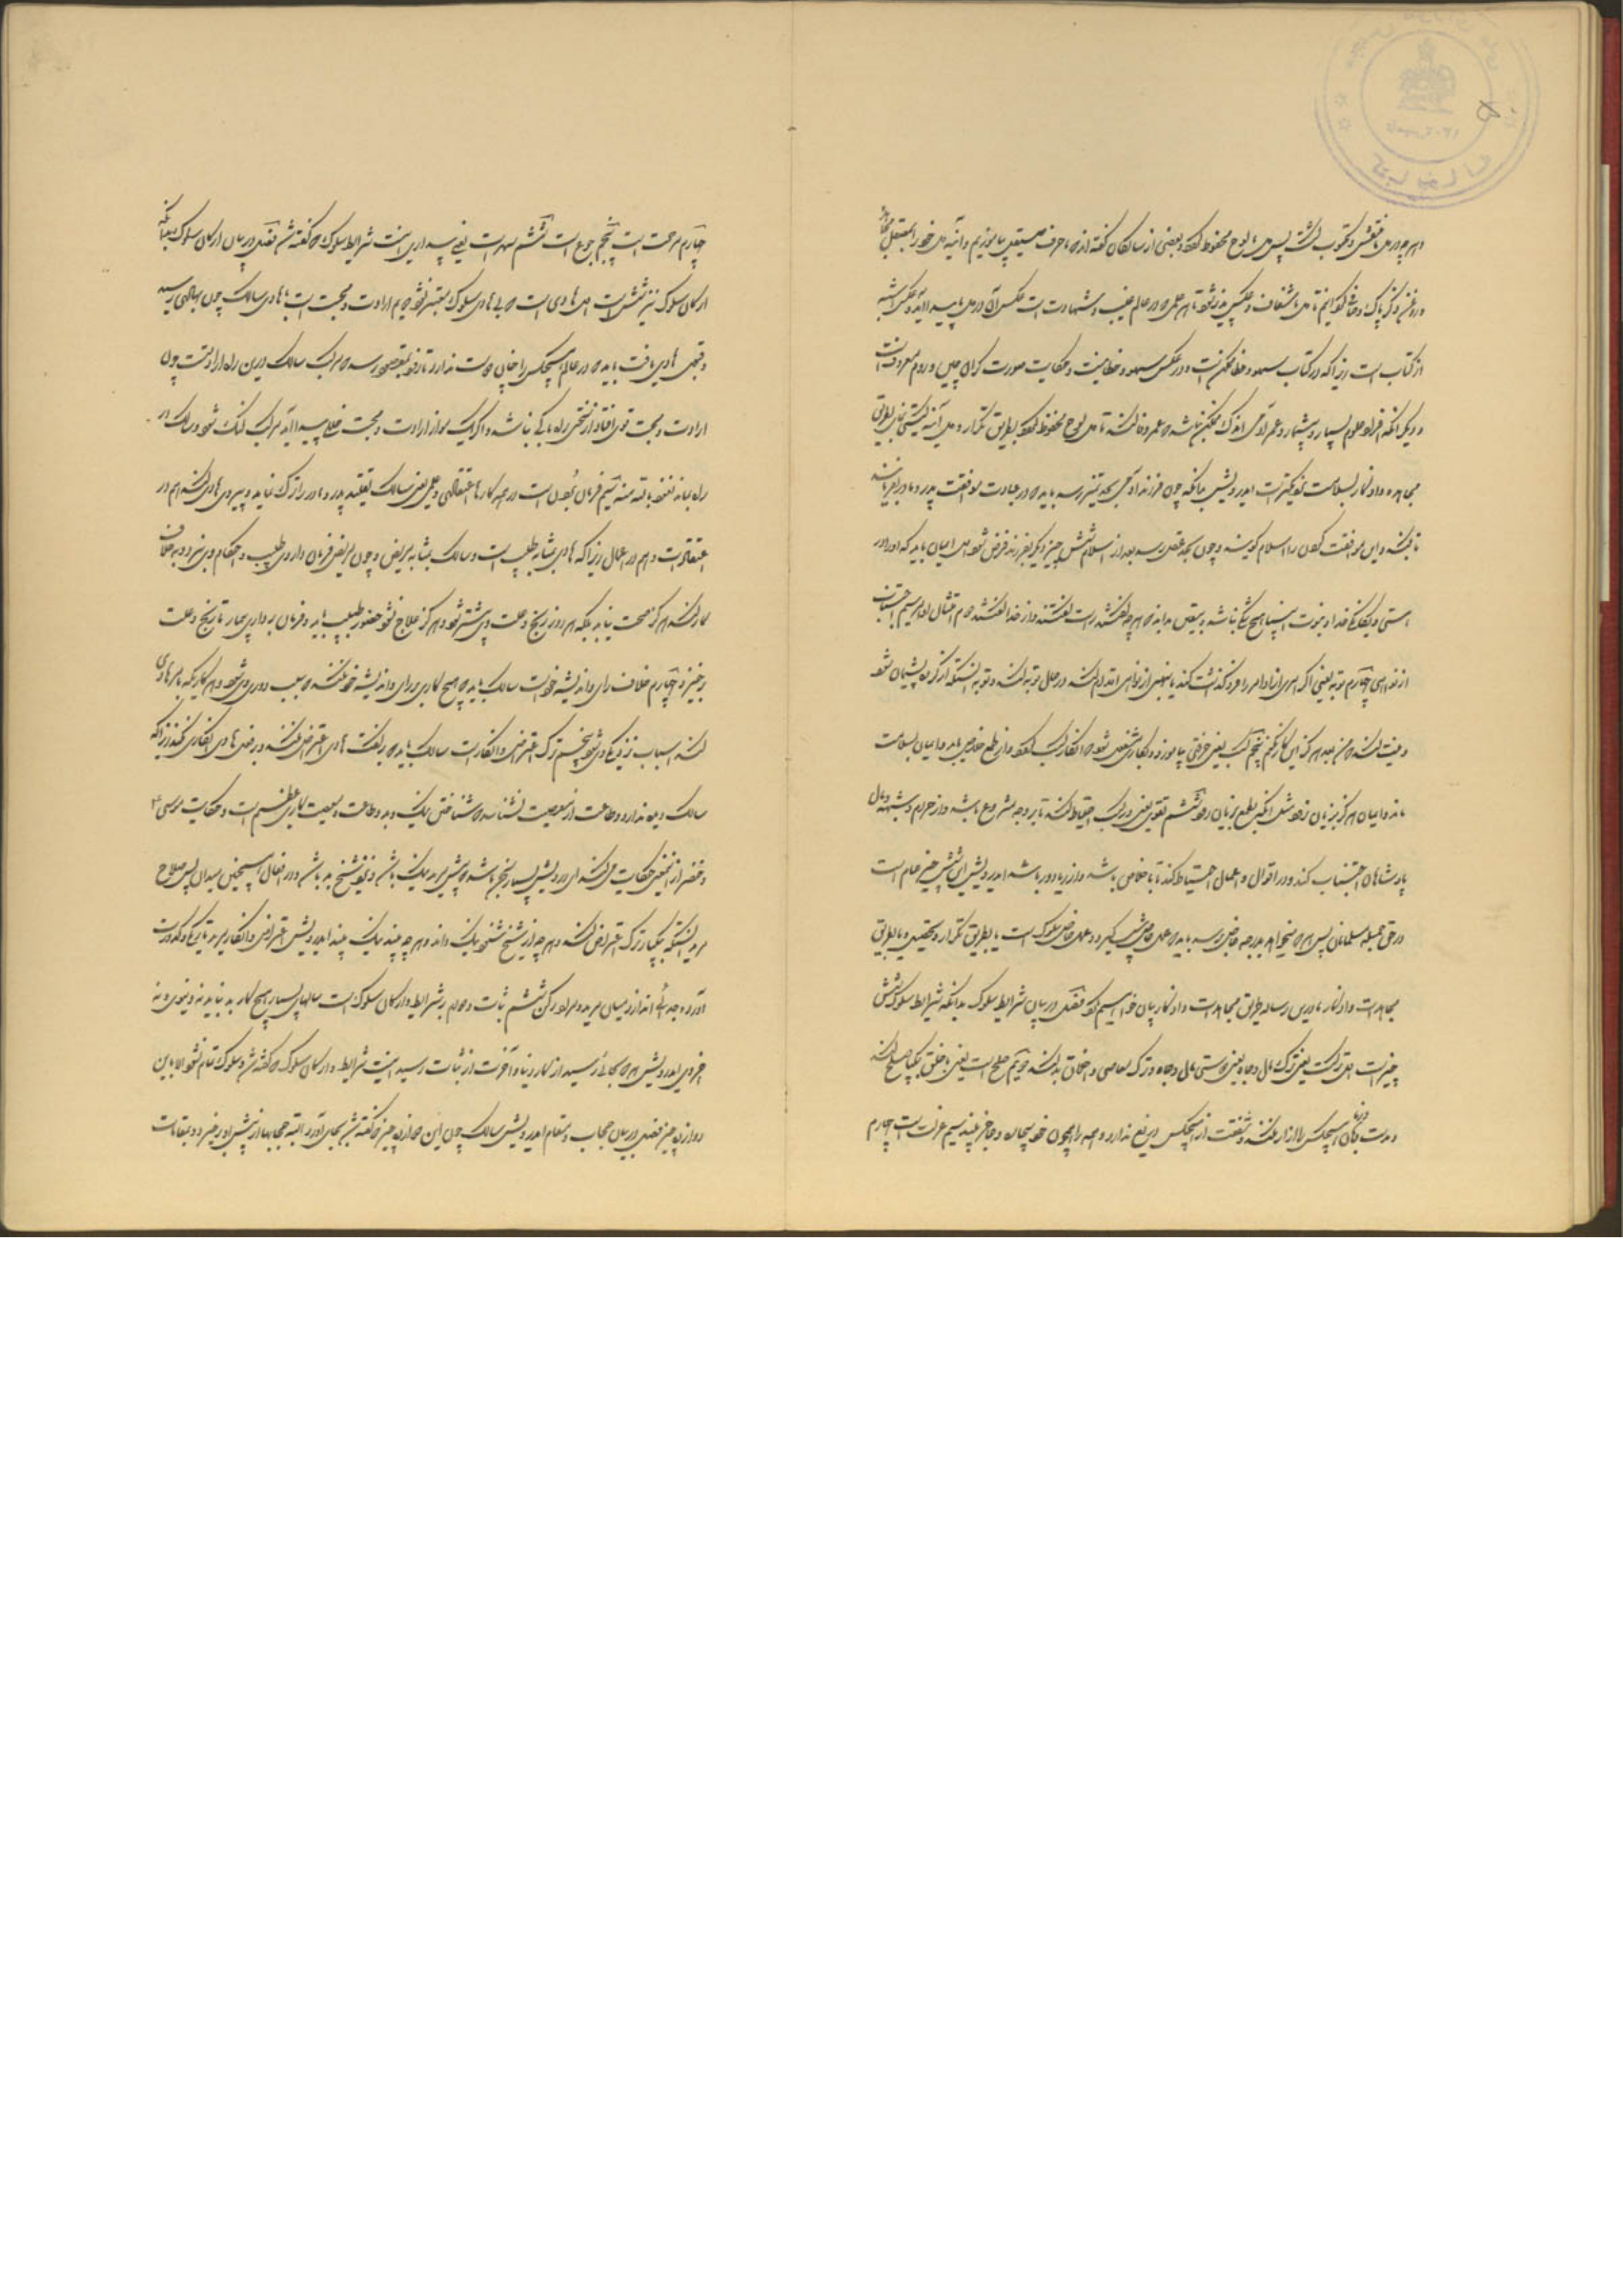 و هرچه در دل ما نقش و مکتوب گشت پس دل ما لوح محفوظ گردد و بعضی از سالکان گفته‌اند که ما حرف صیقلی بیاموزیم و آینه دل خود را بصقل مجاهده
و روغن ذکر پاک و صافی گردانیم تا دل ما شفاف و عکس‌پذیر شود تا هر علمی که در عالم غیب و شهادت است عکس آن در دل ما پیدا آید و عکس
از کتاب است زیرا که در کتاب سهو و خطا ممکن است و در عکس سهو و خطا نیست و حکایت صورت گران چین و روم معروفست
و دیگر آنکه افراد علوم بسیار و بیشمار و عمر آدمی اندک ممکن نباشد که عمر وفا کند تا دل لوح محفوظ گردد بطریق تکرار و دل آینه گیتی نمای بطریق
مجاهده و اذکار بسلامت نزدیکتر است ای درویش بدانکه چون فرزند آدمی بحد تمیز رسد باید که در عبادت موافقت پدر و مادر
باشد و این موافقت کردن را اسلام گویند و چون بحد عقل رسد بعد از اسلام شش چیز دیگر بر فرزند فرض شود اول ایمان باید که او را در
هستی و یگانگی خدا و نبوت انبیا هیچ شکی نباشد و بیقین بداند که هرچه گفتند راست گفتند و از خدا گفتند دوم امتثال اوامر سیم اجتناب
از نواهی چهارم توبه یعنی اگر امری از اوامر را فرو گذاشت کند یا بنهیی از نواهی اقدام کند در حال توبه کند و توبه آنست که از کرده پشیمان شود
و نیت کند که من بعد هرگز این کار نکنم پنجم کسب یعنی حرفتی بیاموزد و بکاری مشغول شود که از کار کسب کند و از طمع خلاص یابد و ایمان بسلامت
ماند و ایمان هرگز بزیان نرود مگر بطمع بزیان رود ششم تقوی یعنی در کسب احتیاط کند تا بر وجه مشروع باشد و از حرام و شبهه و مال
پادشاهان اجتناب کند و در اقوال و اعمال احتیاط کند تا با خلاص باشد و از ریا دور باشد ای درویش این شش چیز عام است
در حق جمله مسلمانان پس هر که میخواهد بدرجه خاص رسد باید که عمل خاص پیش گیرد و عمل خاص سلوک است یا بطریق تکرار و تحصیل و یا بطریق
مجاهدت و اذکار ما درین رساله طریق مجاهدت و اذکار بیان خواهیم کرد فصل در بیان شرایط سلوک بدانکه شرایط سلوک شش
چیز است اول ترکست یعنی ترک مال و جاه یعنی دوستی مال و جاه و ترک معاصی و اخلاق بد کند دویم صلح است یعنی با خلق بیکبار صلح کند
و دست و زبان هیچکس را آزار نکند و شفقت از هیچکس دریغ ندارد و همه را همچون خود بیچاره و عاجز بیند سیم عزلت است چهارم
چهارم صمت است پنجم جوع است ششم سهر است یعنی بیداری اینست شرایط سلوک که گفته شد فصل در بیان ارکان سلوک بدانکه
ارکان سلوک نیز شش است اول هادی است که بی هادی سلوک میسر نشود دویم ارادت و محبت است با هادی سالک چون بهادی رسید
و قبولی هادی یافت باید که در عالم هیچکس را چنان دوست ندارد تا زود بمقصود رسد که مرکب سالک درین راه ارادتست چون
ارادت و محبت قوی افتاد از سختی راه باکی نباشد و اگر یک مو از ارادت و محبت خللی پیدا آید مرکب لنگ شود و سالک در
راه بماند سیم فرمان بردن است در همه کارها اعتقادی و عملی یعنی سالک تقلید پدر و مادر را ترک نماید و پیروی هادی کند هم در
اعتقادات و هم در اعمال زیرا که هادی بمثابه طبیب است و سالک بمثابه مریض و چون مریض فرمان و داروی طبیب و احکام وی نبرد و بخلاف
کار کند هرگز صحت نیابد بلکه هر روز رنج و علت وی بیشتر شود و هرگز علاج نشود حضور طبیب باید و فرمان برداری بیمار تا رنج و علت
برخیزد چهارم خلاف رای و اندیشه خود است سالک باید که هیچ کاری برای و اندیشه خود نکند که سبب دوری وی شود و هر کاری که بامر هادی
کند اسباب نزدیکی وی شود پنجم ترک اعتراض و انکار است سالک باید که بر گفت هادی اعتراض نکند و بر فعل هادی انکاری نکند زیرا که
سالک نیک و بد نداند و طاعت از معصیت نشناسد که شناختن نیک و بد و طاعت و معصیت کاری عظیم است و حکایت موسی
و خضر از این معنی حکایت می‌کند ای درویش بسیار چیز باشد که پیش مرید نیک باشد و نزد شیخ بد باشد و در افعال همچنین میدان پس صلاح
مرید آنست که بیکبار ترک اعتراض کند و هرچه از شیخ شنود نیک داند و هرچه بیند نیک بیند ای درویش اعتراض و انکار مرید تاریکی و کدورت
آورد و جدائی اندازد میان مرید و مراد رکن ششم ثبات و دوام بر شرایط و ارکان سلوک است سالهای بسیار هیچ کار بد نیاید نه دنیوی و نه
اخروی ای درویش هر که بجائی رسید از کار دنیا و آخرت از ثبات رسید اینست شرایط و ارکان سلوک که گفته شد و سلوک تمام نشود الا باین
دوازده چیز فصل در بیان حجاب و مقام ای درویش سالک چون این دوازده چیز که گفته شد بجای آورد البته حجابها از پیش او برخیزد و بمقامات